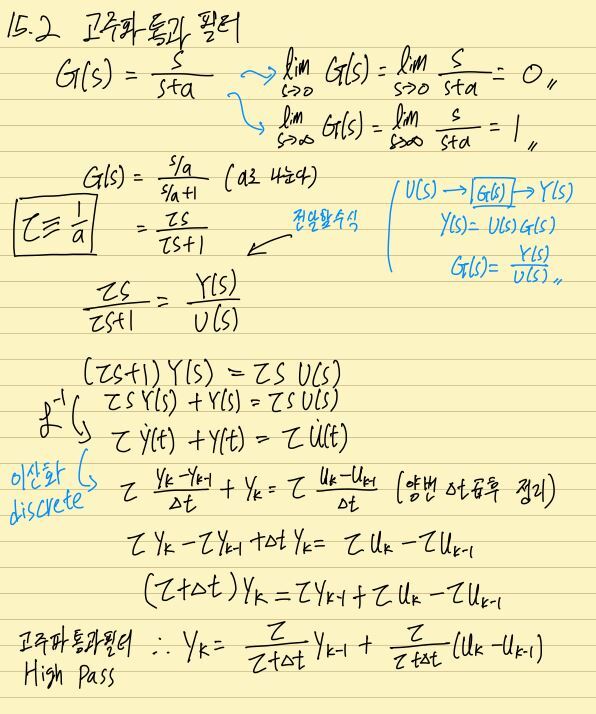 15.2 고주파 통과 필터
G(s) = s/(s+a) → lim s→0 G(s) = lim s→0 s/(s+a) = 0〃
→ lim s→∞ G(s) = lim s→∞ s/(s+a) = 1〃
G(s) = (s/a)/(s/a+1) (a로 나눈다)
τ ≡ 1/a
= τs/(τs+1)
전달함수식
U(s) → G(s) → Y(s)
Y(s) = U(s)G(s)
G(s) = Y(s)/U(s)〃
τs/(τs+1) = Y(s)/U(s)
(τs+1)Y(s) = τs U(s)
τs Y(s) + Y(s) = τs U(s)
ℒ⁻¹
τ ẏ(t) + y(t) = τ u̇(t)
이산화
discrete
τ (yₖ-yₖ₋₁)/Δt + yₖ = τ (uₖ-uₖ₋₁)/Δt (양변 Δt 곱후 정리)
τyₖ - τyₖ₋₁ + Δt yₖ = τuₖ - τuₖ₋₁
(τ+Δt)yₖ = τyₖ₋₁ + τuₖ - τuₖ₋₁
고주파통과필터 ∴ yₖ = τ/(τ+Δt) yₖ₋₁ + τ/(τ+Δt) (uₖ-uₖ₋₁)
High Pass